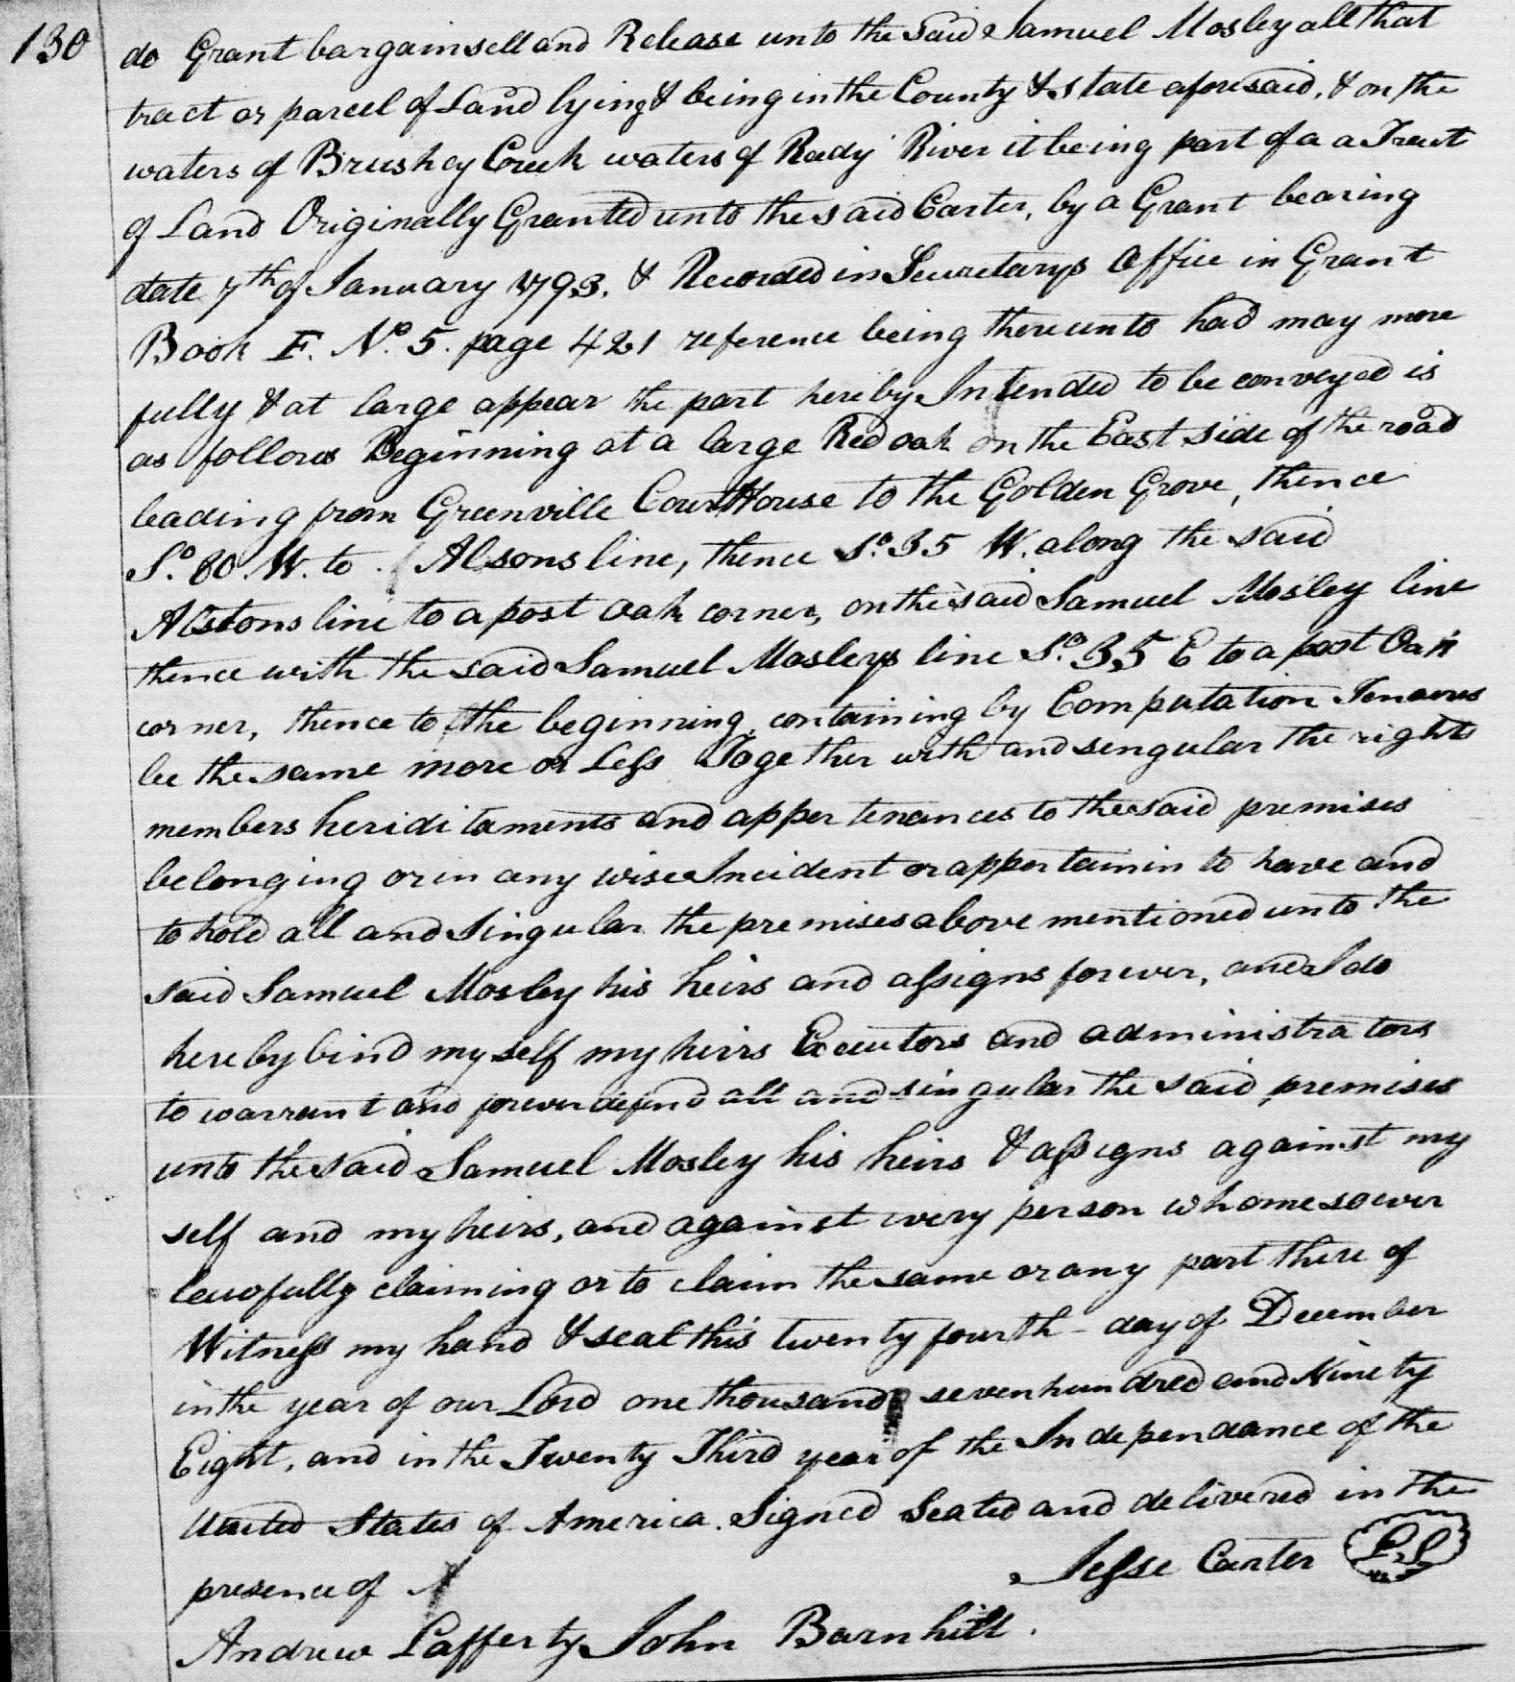 130
do Grant bargain sell and Release unto the said Samuel Mosley all that
tract or parcel of Land lying & being in the County & state aforesaid, & on the
waters of Brushey Creek waters of Reedy River it being part of a a Tract
of Land Originally Granted unto the said Carter, by a Grant bearing
date 7th of January 1793. & Recorded in Secretarys Office in Grant
Book F. No. 5. page 421 reference being thereunto had may more
fully & at large appear the part hereby Intended to be conveyed is
as follows Beginning at a large Red oak on the East side of the road
leading from Greenville Court House to the Golden Grove, thence
So. 80. W. to Alsons line, thence So. 35 W. along the said
Alstons line to a post oak corner, on the said Samuel Mosley line
thence with the said Samuel Mosleys line So. 35 E to a post Oak
corner, thence to the beginning, containing by Computation Tenacres
be the same more or Less Together with and sengular the rights
members heriditaments and appertenances to the said premises
belonging or in any wise Incident or appertainin to have and
to hold all and Singular the premises above mentioned unto the
said Samuel Mosley his heirs and assigns forever, and I do
hereby bind my self my heirs Executors and administrators
to warrant and forever defend all and singular the said premises
unto the said Samuel Mosley his heirs & assigns against my
self and my heirs, and against every person whomesoever
lawfully claiming or to claim the same or any part there of
Witness my hand & seal this twenty fourth - day of December
in the year of our Lord one thousand seven hundred and Ninety
Eight, and in the Twenty Third year of the Independance of the
United States of America. Signed Sealed and delivered in the
presence of Jesse Carter L.S
Andrew Lafferty John Barnhill.